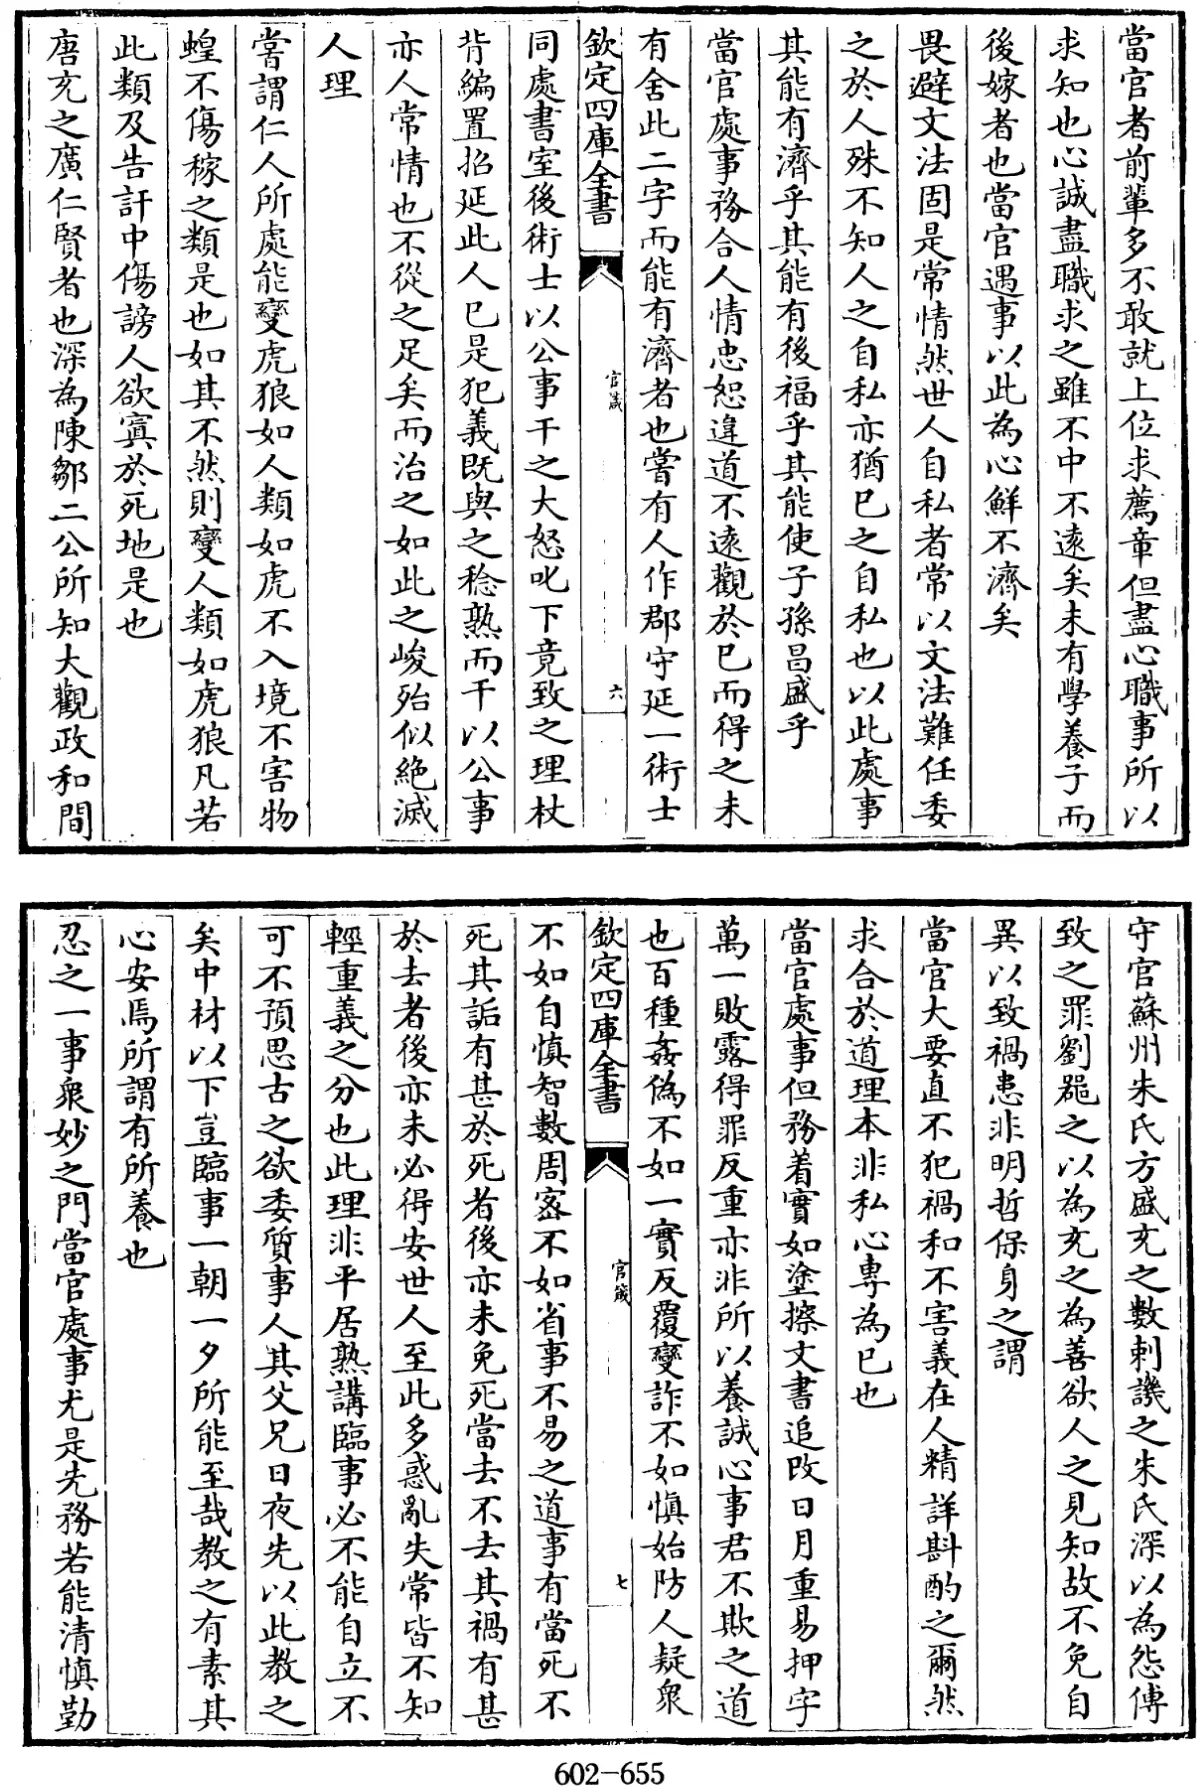 當官者前輩多不敢就上位求薦章但盡心職事所以
求知也心誠盡職求之雖不中不遠矣未有學養子而
後嫁者也當官遇事以此為心鮮不濟矣
畏避文法固是常情然世人自私者常以文法難任委
之於人殊不知人之自私亦猶已之自私也以此處事
其能有濟乎其能有後福乎其能使子孫昌盛乎
當官處事務合人情忠恕違道不遠觀於已而得之未
有舍此二字而能有濟者也嘗有人作郡守延一術士
欽定四庫全書
官箴
六
同處書室後術士以公事干之大怒叱下竟致之理杖
背編置招延此人已是犯義既與之稔熟而干以公事
亦人常情也不從之足矣而治之如此之峻殆似絶滅
人理
嘗謂仁人所處能變虎狼如人類如虎不入境不害物
蝗不傷稼之類是也如其不然則變人類如虎狼凡若
此類及告訐中傷謗人欲寘於死地是也
唐充之廣仁賢者也深為陳鄒二公所知大觀政和間
守官蘇州朱氏方盛充之數刺譏之朱氏深以為怨傅
致之罪劉器之以為充之為善欲人之見知故不免自
異以致禍患非明哲保身之謂
當官大要直不犯禍和不害義在人精詳斟酌之爾然
求合於道理本非私心專為已也
當官處事但務着實如塗擦文書追改日月重易押字
萬一敗露得罪反重亦非所以養誠心事君不欺之道
也百種姦偽不如一實反覆變詐不如慎始防人疑衆
欽定四庫全書
官箴
七
不如自慎智數周宻不如省事不易之道事有當死不
死其詬有甚於死者後亦未免死當去不去其禍有甚
於去者後亦未必得安世人至此多惑亂失常皆不知
輕重義之分也此理非平居熟講臨事必不能自立不
可不預思古之欲委質事人其父兄日夜先以此教之
矣中材以下豈臨事一朝一夕所能至哉教之有素其
心安焉所謂有所養也
忍之一事衆妙之門當官處事尤是先務若能清慎勤
602-655